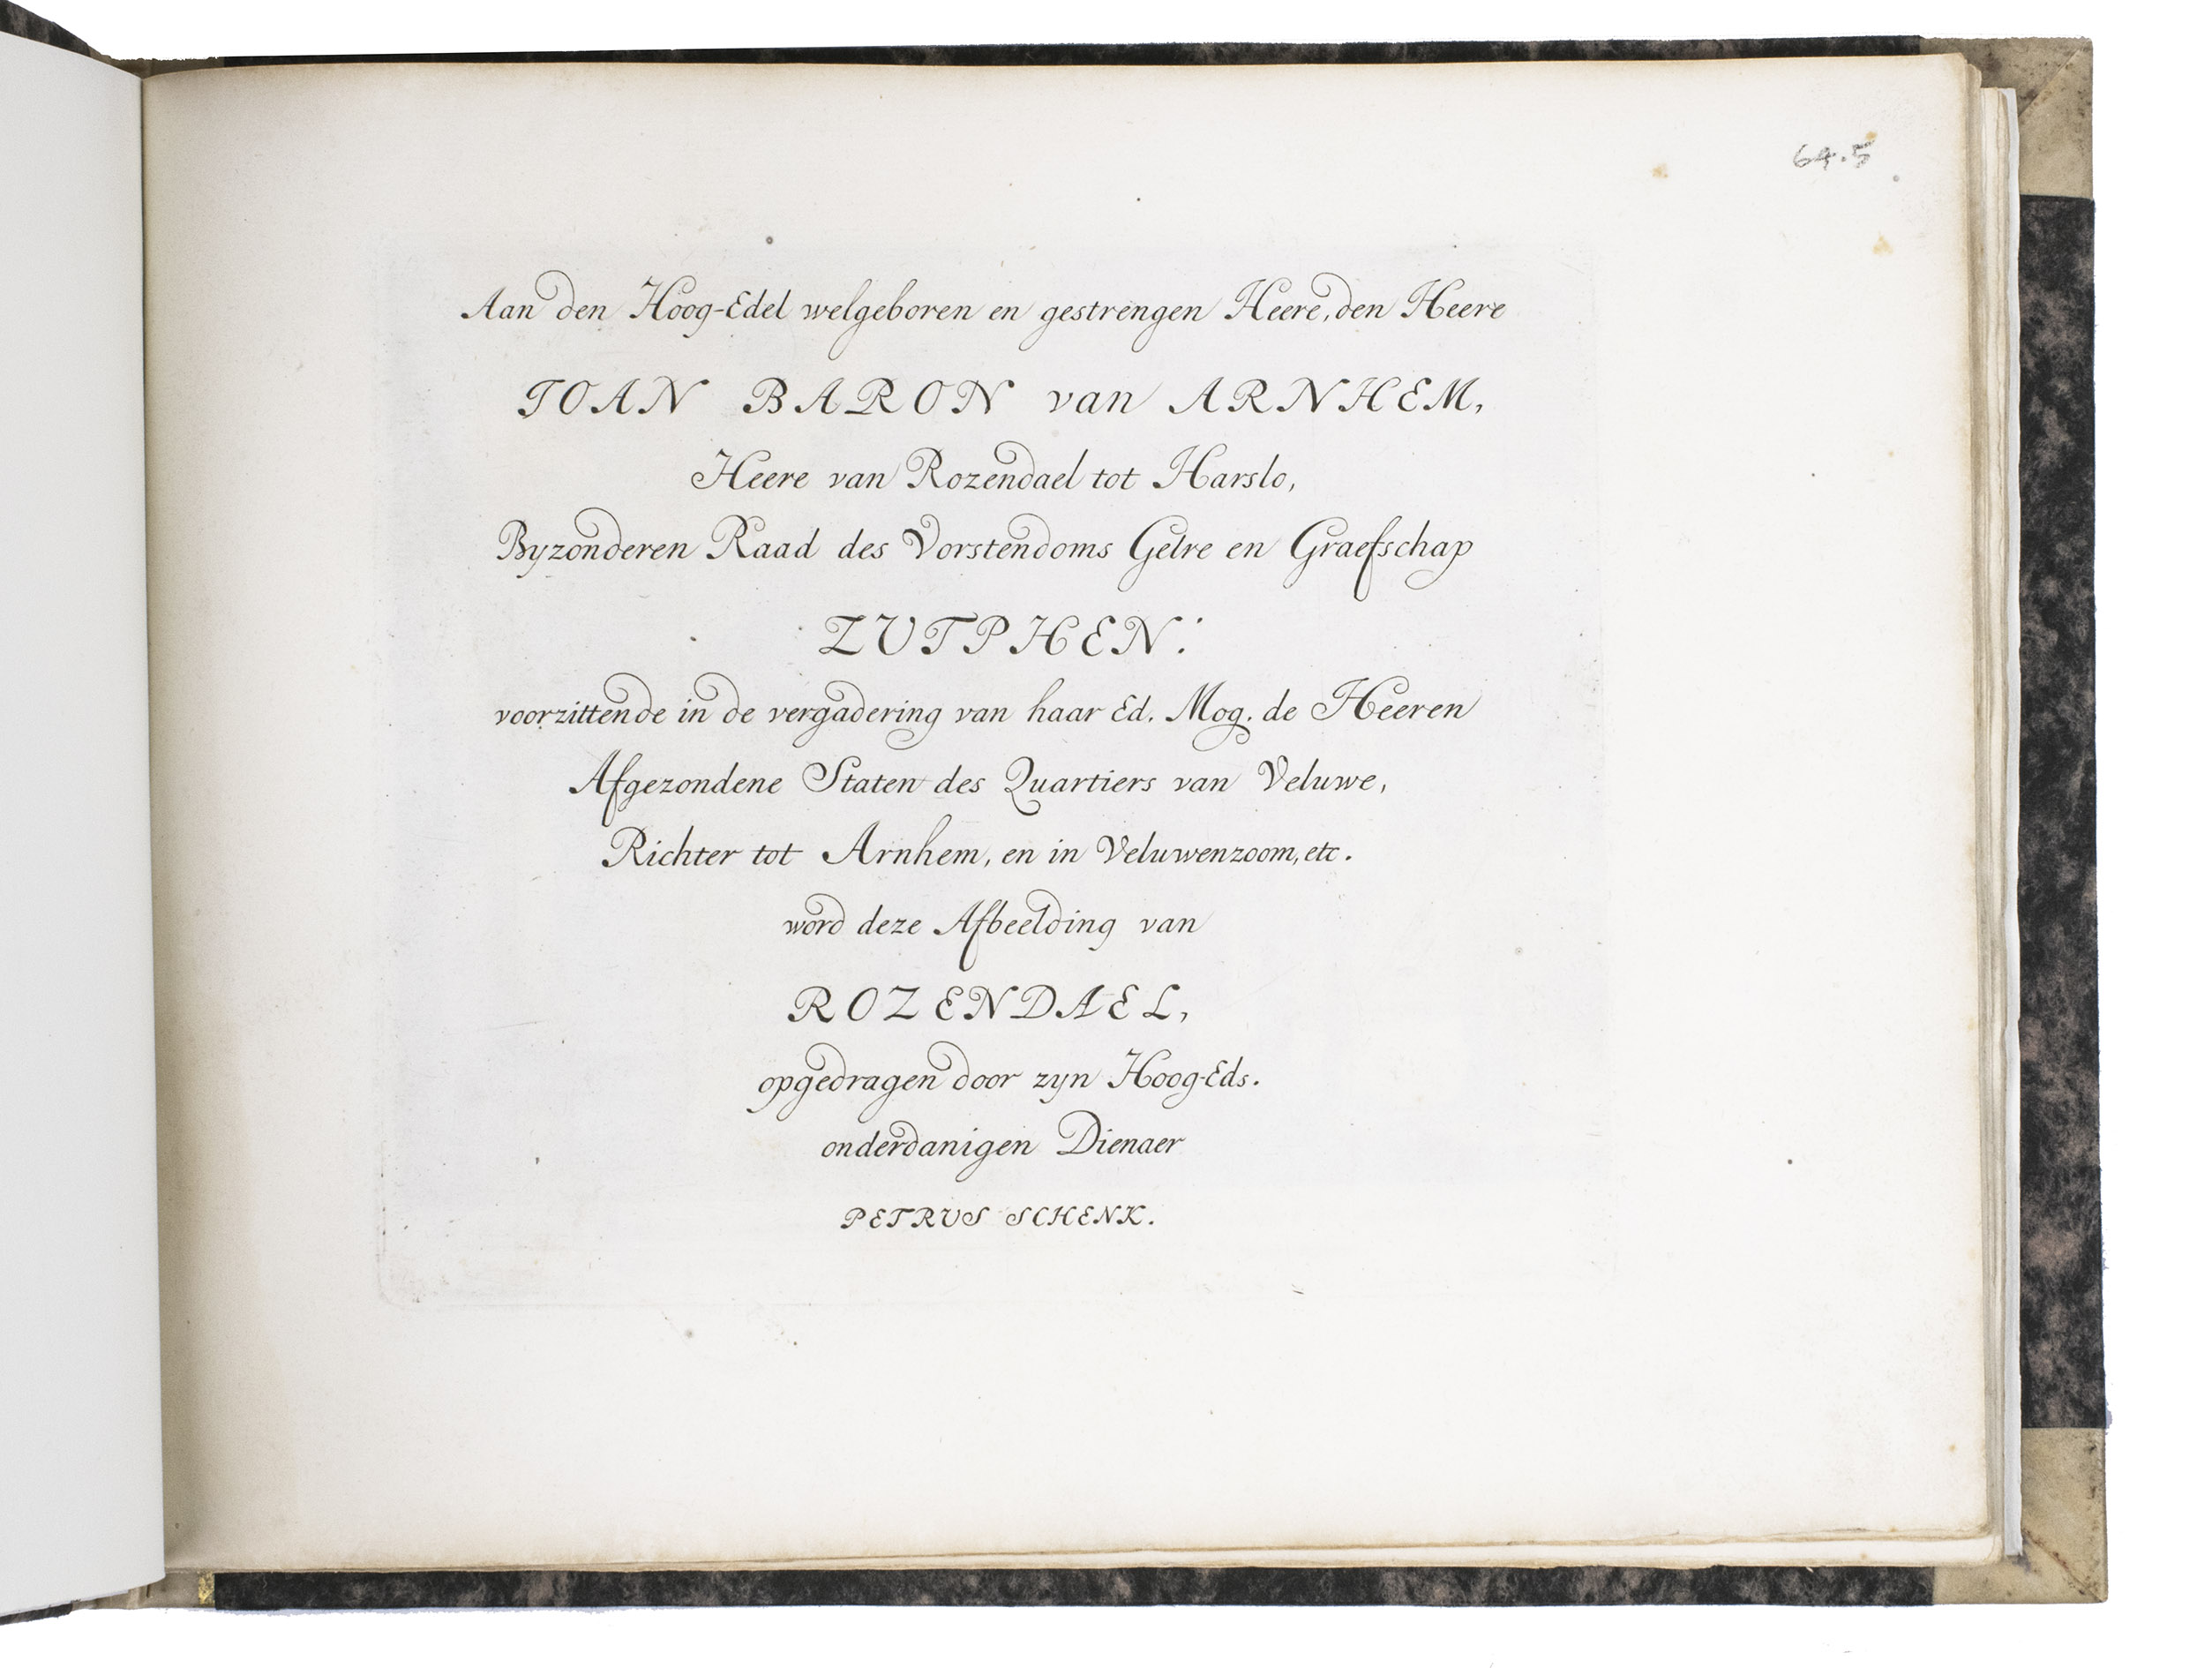 64.5
Aan den Hoog-Edel welgeboren en gestrengen Heere, den Heere
IOAN BARON van ARNHEM,
Heere van Rozendael tot Harslo,
Byzonderen Raad des Vorstendoms Gelre en Graefschap
ZUTPHEN:
voorzittende in de vergadering van haar Ed. Mog. de Heeren
Afgezondene Staten des Quartiers van Veluwe,
Richter tot Arnhem, en in Veluwenzoom, etc.
word deze Afbeelding van
ROZENDAEL,
opgedragen door zyn Hoog-Eds.
onderdanigen Dienaer
PETRUS SCHENK.